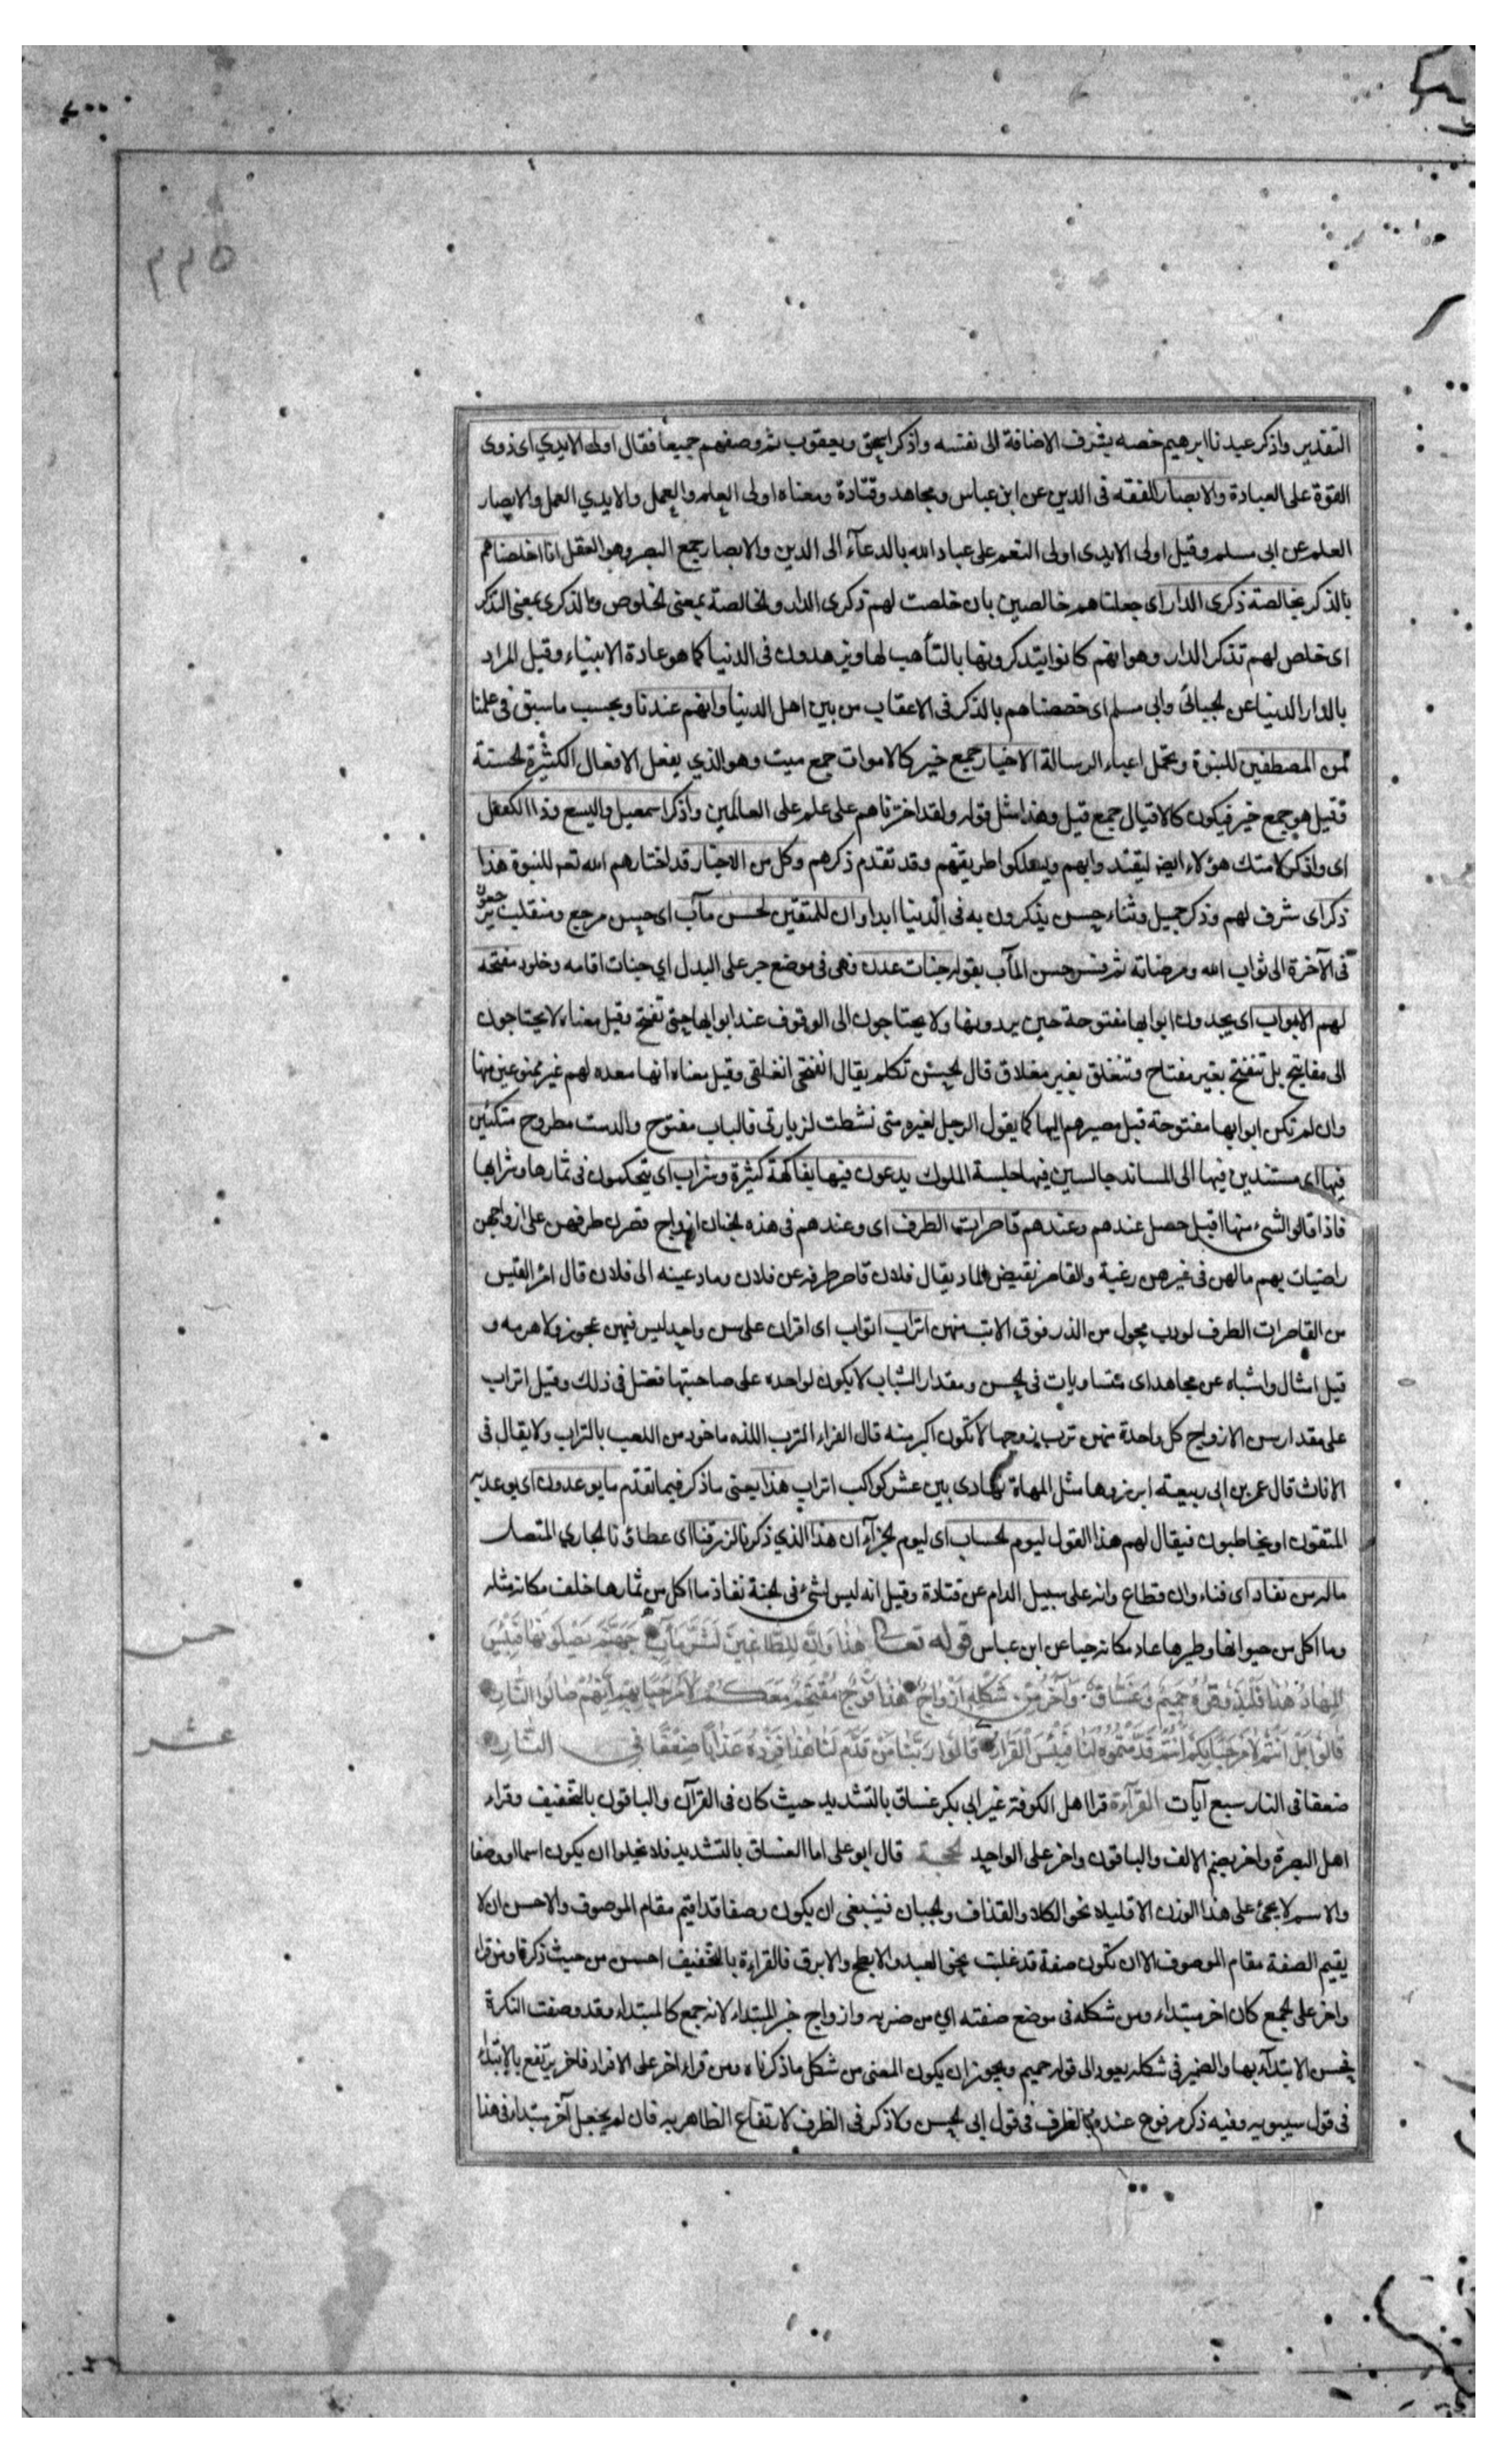 ٢٢٥
التقدير واذكر عبدنا ابرهيم خصه بشرف الاضافة الى نفسه واذكر اسحق ويعقوب ثم وصفهم جميعا فقال اولى الايدي اى ذوى
القوة على العبادة والابصار الفقه فى الدين عن ابن عباس ومجاهد وقتادة ومعناه اولى العلم والعمل والايدي العمل والابصار
العلم عن ابى مسلم وقيل اولى الايدى اولى النعم على عباد الله بالدعآء الى الدين والابصار جمع البصر وهو العقل انا اخلصناهم
بالذكر بخالصة ذكرى الدار اى جعلناهم خالصين بان خلصت لهم ذكرى الدار والخالصة بمعنى الخلوص والذكرى بمعنى التذكر
اى خلص لهم تذكر الدار وهو انهم كانوا يتذكرونها بالتأهب لها ويزهدون فى الدنيا كما هو عادة الانبياء وقيل المراد
بالدار الدنيا عن الجبائى وابى مسلم اى خصصناهم بالذكر فى الاعقاب من بين اهل الدنيا وانهم عندنا وبحسب ما سبق فى علمنا
لمن المصطفين للنبوة وتحمل اعباء الرسالة الاخيار جمع خير كالاموات جمع ميت وهو الذي يفعل الافعال الكثيرة الحسنة
وقيل هو جمع خير فيكون كالاقيال جمع قيل وهذا مثل قوله ولقد اخترناهم على علم على العالمين واذكر اسمعيل واليسع وذا الكفل
اى واذكر لامتك هؤلاء ايضا ليقتدوا بهم ويسلكوا طريقتهم وقد تقدم ذكرهم وكل من الاخيار قد اختارهم الله تعم للنبوة هذا
ذكر اى شرف لهم وذكر جميل وثناء حسن يذكرون به فى الدنيا ابدا وان للمتقين لحسن مآب اى حسن مرجع ومنقلب يرجعون
فى الآخرة الى ثواب الله ومرضاته ثم فسر حسن المآب بقوله جنات عدن فهى فى موضع جر على البدل اي جنات اقامه وخلود مفتحة
لهم الابواب اى يجدون ابوابها مفتوحة حين يردونها ولا يحتاجون الى الوقوف عند ابوابها حتى تفتح وقيل معناه لا يحتاجون
الى مفاتيح بل تنفتح بغير مفتاح وتنغلق بغير مغلاق قال الحسن تكلم يقال انفتحى انغلقى وقيل معناه انها معده لهم غير ممنوعين منها
وان لم تكن ابوابها مفتوحة قبل مصيرهم اليها كما يقول الرجل لغيره متى نشطت لزيارتى فالباب مفتوح والدست مطروح متكئين
فيها اى مستندين فيها الى المساند جالسين فيها جلسة الملوك يدعون فيها بفاكهة كثيرة وشراب اى يتحكمون فى ثمارها وشرابها
فاذا قالوا لشىء منها اقبل حصل عندهم وعندهم قاصرات الطرف اى وعندهم فى هذه الجنان ازواج قصرن طرفهن على ازواجهن
راضيات بهم ما لهن فى غيرهن رغبة والقاصر نقيض الماد يقال فلان قاصر طرفه عن فلان وماد عينه الى فلان قال امرؤ القيس
من القاصرات الطرف لو دب محول من الذر فوق الاتب منهن اتراب اتواب اى اقران على سن واحد ليس فيهن عجوز ولا هرمه و
قيل امثال واشباه عن مجاهد اى متساويات فى الحسن ومقدار الشباب لا يكون لواحده على صاحبتها فضل فى ذلك وقيل اتراب
على مقدار سن الازواج كل واحدة منهن ترب زوجها لا تكون اكبر منه قال الفراء الترب اللذه ماخوذ من اللعب بالتراب ولا يقال فى
الاناث قال عمر بن ابى ربيعة ابرزوها مثل المهاة تهادى بين عشر كواكب اتراب هذا يعنى ما ذكر فيما تقدم ما يوعدون اى يوعد به
المتقون او يخاطبون فيقال لهم هذا القول ليوم الحساب اى ليوم الجزآء ان هذا الذي ذكرنا لرزقنا اى عطاؤنا الجاري المتصل
ما له من نفاد اى فناء وانقطاع وانه على سبيل الدام عن قتادة وقيل انه ليس لشىء فى الجنة نفاذ ما اكل من ثمارها خلف مكانه مثله
وما اكل من حيوانها وطيرها عاد مكانه حيا عن ابن عباس قوله تعالى هٰذَا وَاِنَّ لِلطَّاغِينَ لَشَرَّ مَآبٍ جَهَنَّمَ يَصْلَوْنَهَا فَبِئْسَ
خمس
الْمِهَادُ هٰذَا فَلْيَذُوقُوهُ حَمِيمٌ وَغَسَّاقٌ وَآخَرُ مِنْ شَكْلِهِ اَزْوَاجٌ هٰذَا فَوْجٌ مُقْتَحِمٌ مَعَكُمْ لَا مَرْحَبًا بِهِمْ اِنَّهُمْ صَالُوا النَّارِ
قَالُوا بَلْ اَنْتُمْ لَا مَرْحَبًا بِكُمْ اَنْتُمْ قَدَّمْتُمُوهُ لَنَا فَبِئْسَ الْقَرَارُ قَالُوا رَبَّنَا مَنْ قَدَّمَ لَنَا هٰذَا فَزِدْهُ عَذَابًا ضِعْفًا فِي النَّارِ
عشر
ضعفا فى النار سبع آيات القرآءة قرا اهل الكوفة غير ابي بكر غساق بالتشديد حيث كان فى القرآن والباقون بالتخفيف وقراء
اهل البصرة واخر بضم الالف والباقون واخر على الواحد الحجة قال ابو على اما الغساق بالتشديد فلا يخلوا ان يكون اسما او وصفا
والاسم لا يجئ على هذا الوزن الا قليلا نحو الكلاء والقذاف والجبان فينبغى ان يكون وصفا قد اقيم مقام الموصوف والاحسن ان لا
يقيم الصفة مقام الموصوف الا ان تكون صفة قد غلبت نحو العبد والابطح والابرق فالقراءة بالتخفيف احسن من حيث ذكرنا ومن قرا
واخر على الجمع كان اخر مبتداء ومن شكله فى موضع صفته اي من ضربه وازواج خبر المبتداء لانه جمع كالمبتداء وقد وصفت النكرة
فحسن الابتدآء بها والضمير فى شكله يعود الى قوله حميم ويجوز ان يكون المعنى من شكل ما ذكرناه ومن قراء اخر على الافراد فاخر يرتفع بالابتداء
فى قول سيبويه وفيه ذكر مرفوع عنده بالظرف فى قول ابى الحسن ولا ذكر فى الظرف لارتفاع الظاهر به فان لم يجعل آخر مبتداء فى هذا